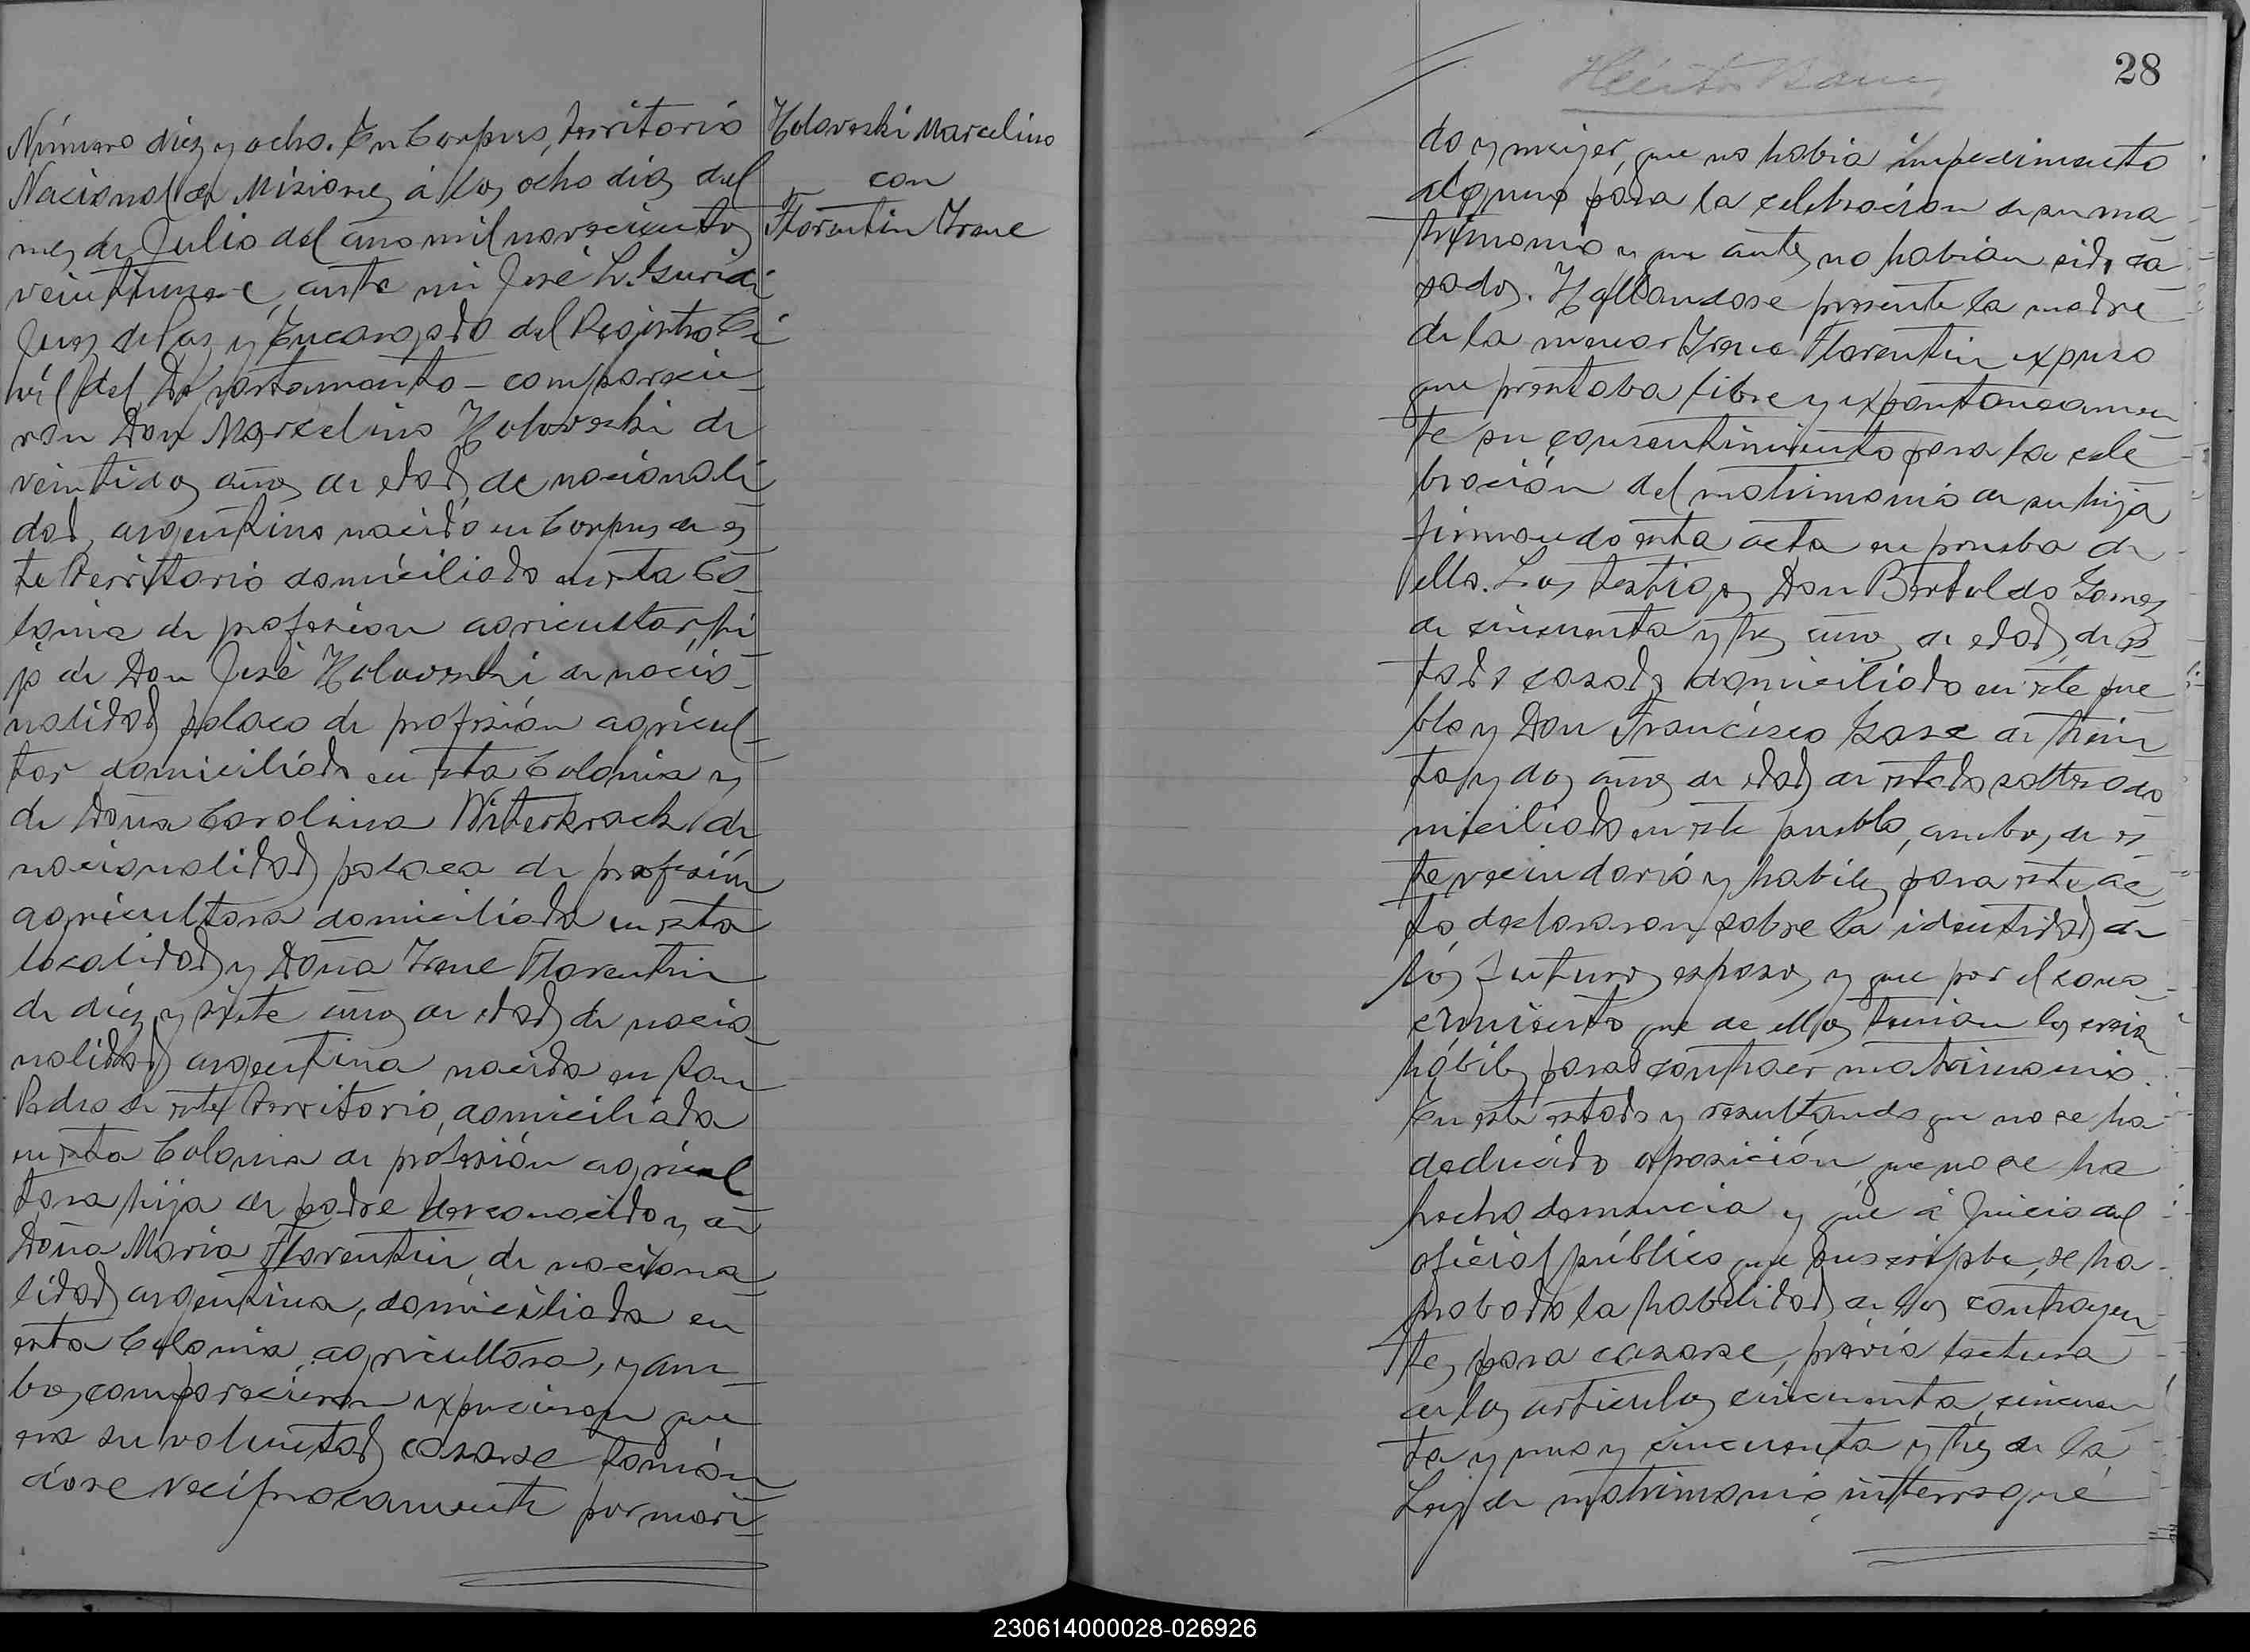 Número diez y ocho. En Corpus, territorio
Nacional de Misiones, á los ocho dias del
mes de Julio del año mil novecientos
ante mi José L.
Juez de Paz y Encargado del Registro Ci
vil del Departamento - comparecie
ron Don Marcelino Holoveski de
veintidos años de edad, de nacionali
dad, argentino nacido en Corpus de es
te Territorio domiciliado en esta Co
lonia de profesion agricultor, hi
jo de Don José Holoveski de nacio
nalidad polaco de profesión agricul
tor domiciliado en esta Colonia y
de Doña Carolina de
nacionalidad polaca de profesión
agricultora domiciliada en esta
localidad, y Doña Irene Florentin
de diez y siete años de edad, de nacio
nalidad argentina nacida en San
Pedro de este Territorio, domiciliada
en esta Colonia de profesión agricul
tora hija de padre desconocido y de
Doña Maria Florentin, de naciona
lidad argentina, domiciliada en
esta Colonia, agricultora, y am
bos comparecieron expusieron que
era su voluntad casarse tomán
dose reciprocamente por mari
Holoveski Marcelino
con
Florentin Irene
28
do y mujer, que no habia impedimento
alguno para la celebracion de su ma
trimonio y que antes no habian sido ca
sados. Hallandose presente la madre
de la menor Irene Florentin expuso
que prestaba libre y expontaneamen
te su consentimiento para la cele
bración del matrimonio de su hija
firmando esta acta en prueba de
ello. Los testigos Don Bertoldo Gomez
de cincuenta y tres años de edad, de es
tado casado domiciliado en este pue
blo y Don Francisco de trein
ta y dos años de edad de estado soltero do
miciliado en este pueblo, ambos de es
te vecindario y habiles para este ac
to, declararon sobre la identidad de
los futuros esposos y que por el cono
cimiento que de ellos tenian los creian
hábiles para contraer matrimonio.
En este estado y resultando que no se ha
deducido oposición, que no se ha
hecho denuncia y que á juicio del
oficial público que suscripbe, se ha
probado la habilidad de los contrayen
tes para casarse, prévia lectura
de los articulos cincuenta, cincuen
ta y uno y cincuenta y tres de la
Ley de matrimonio, interrogué
230614000028-026926